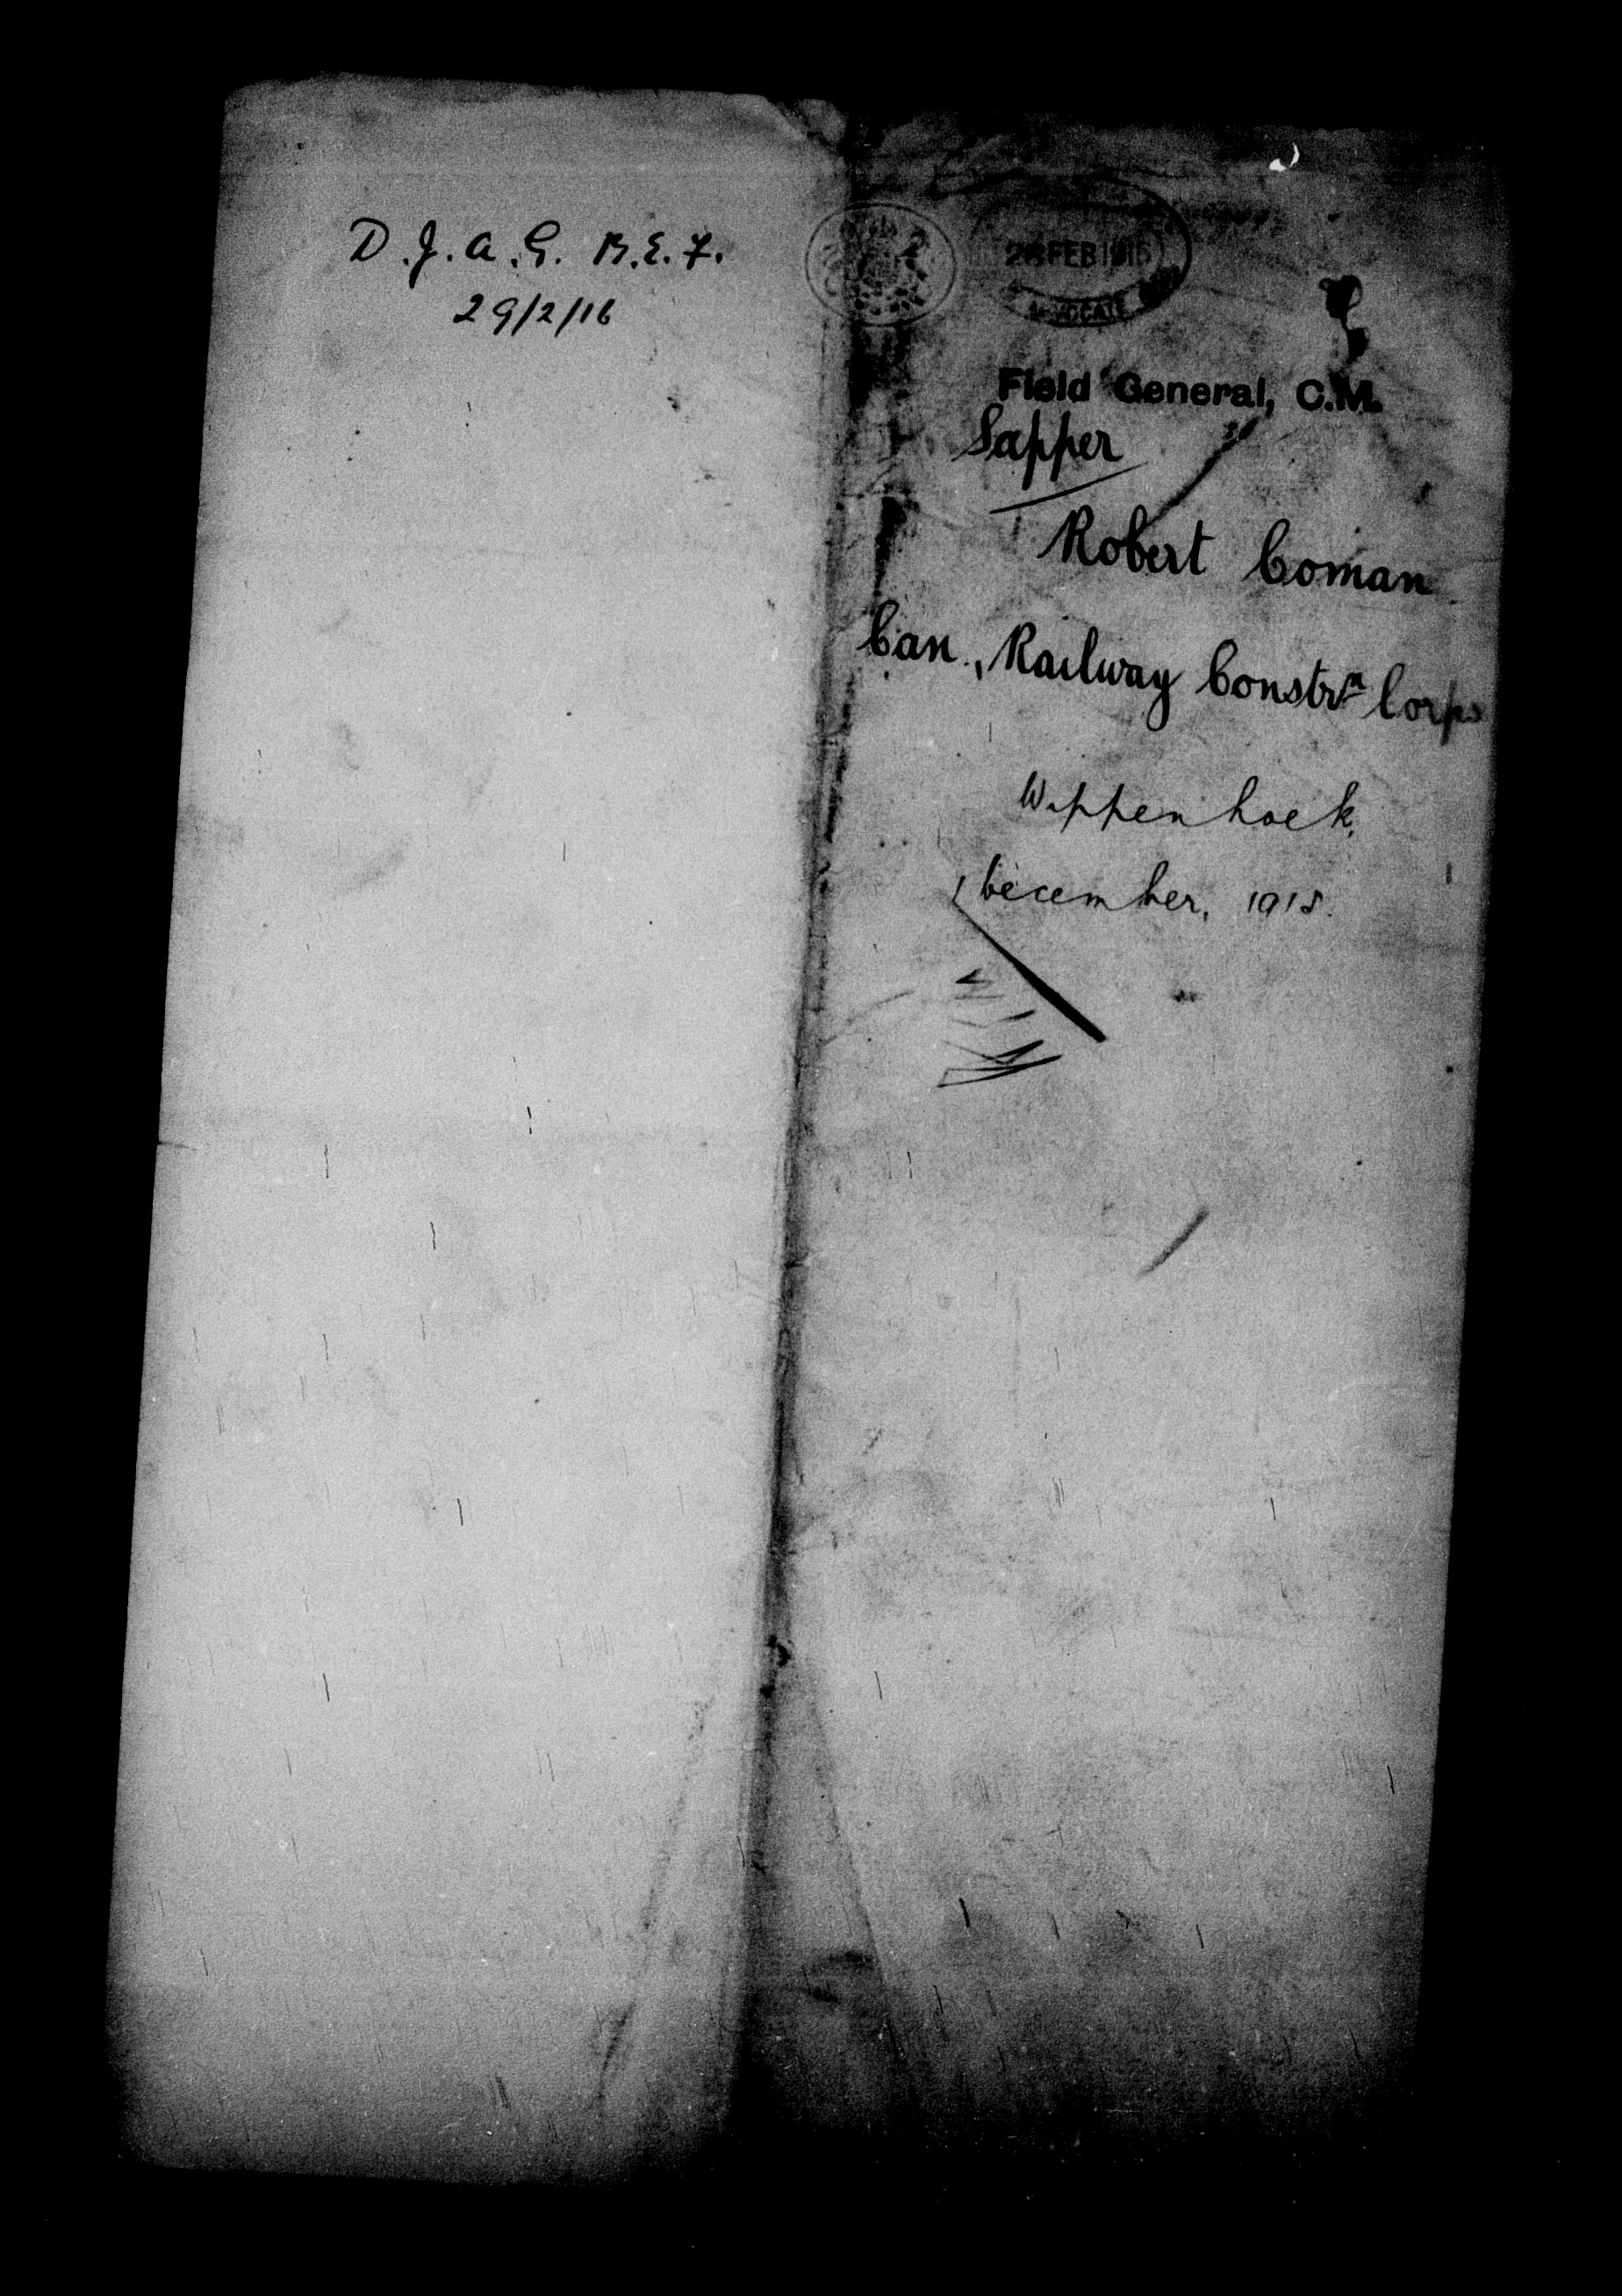 D.J.A.G. B.E.F.
29/2/16
FEB 1916
ADVOCATE
Field General, C.M.
Sapper
Robert Coman
Can. Railway Constrn Corps
Wippenhoek,
December, 1915.